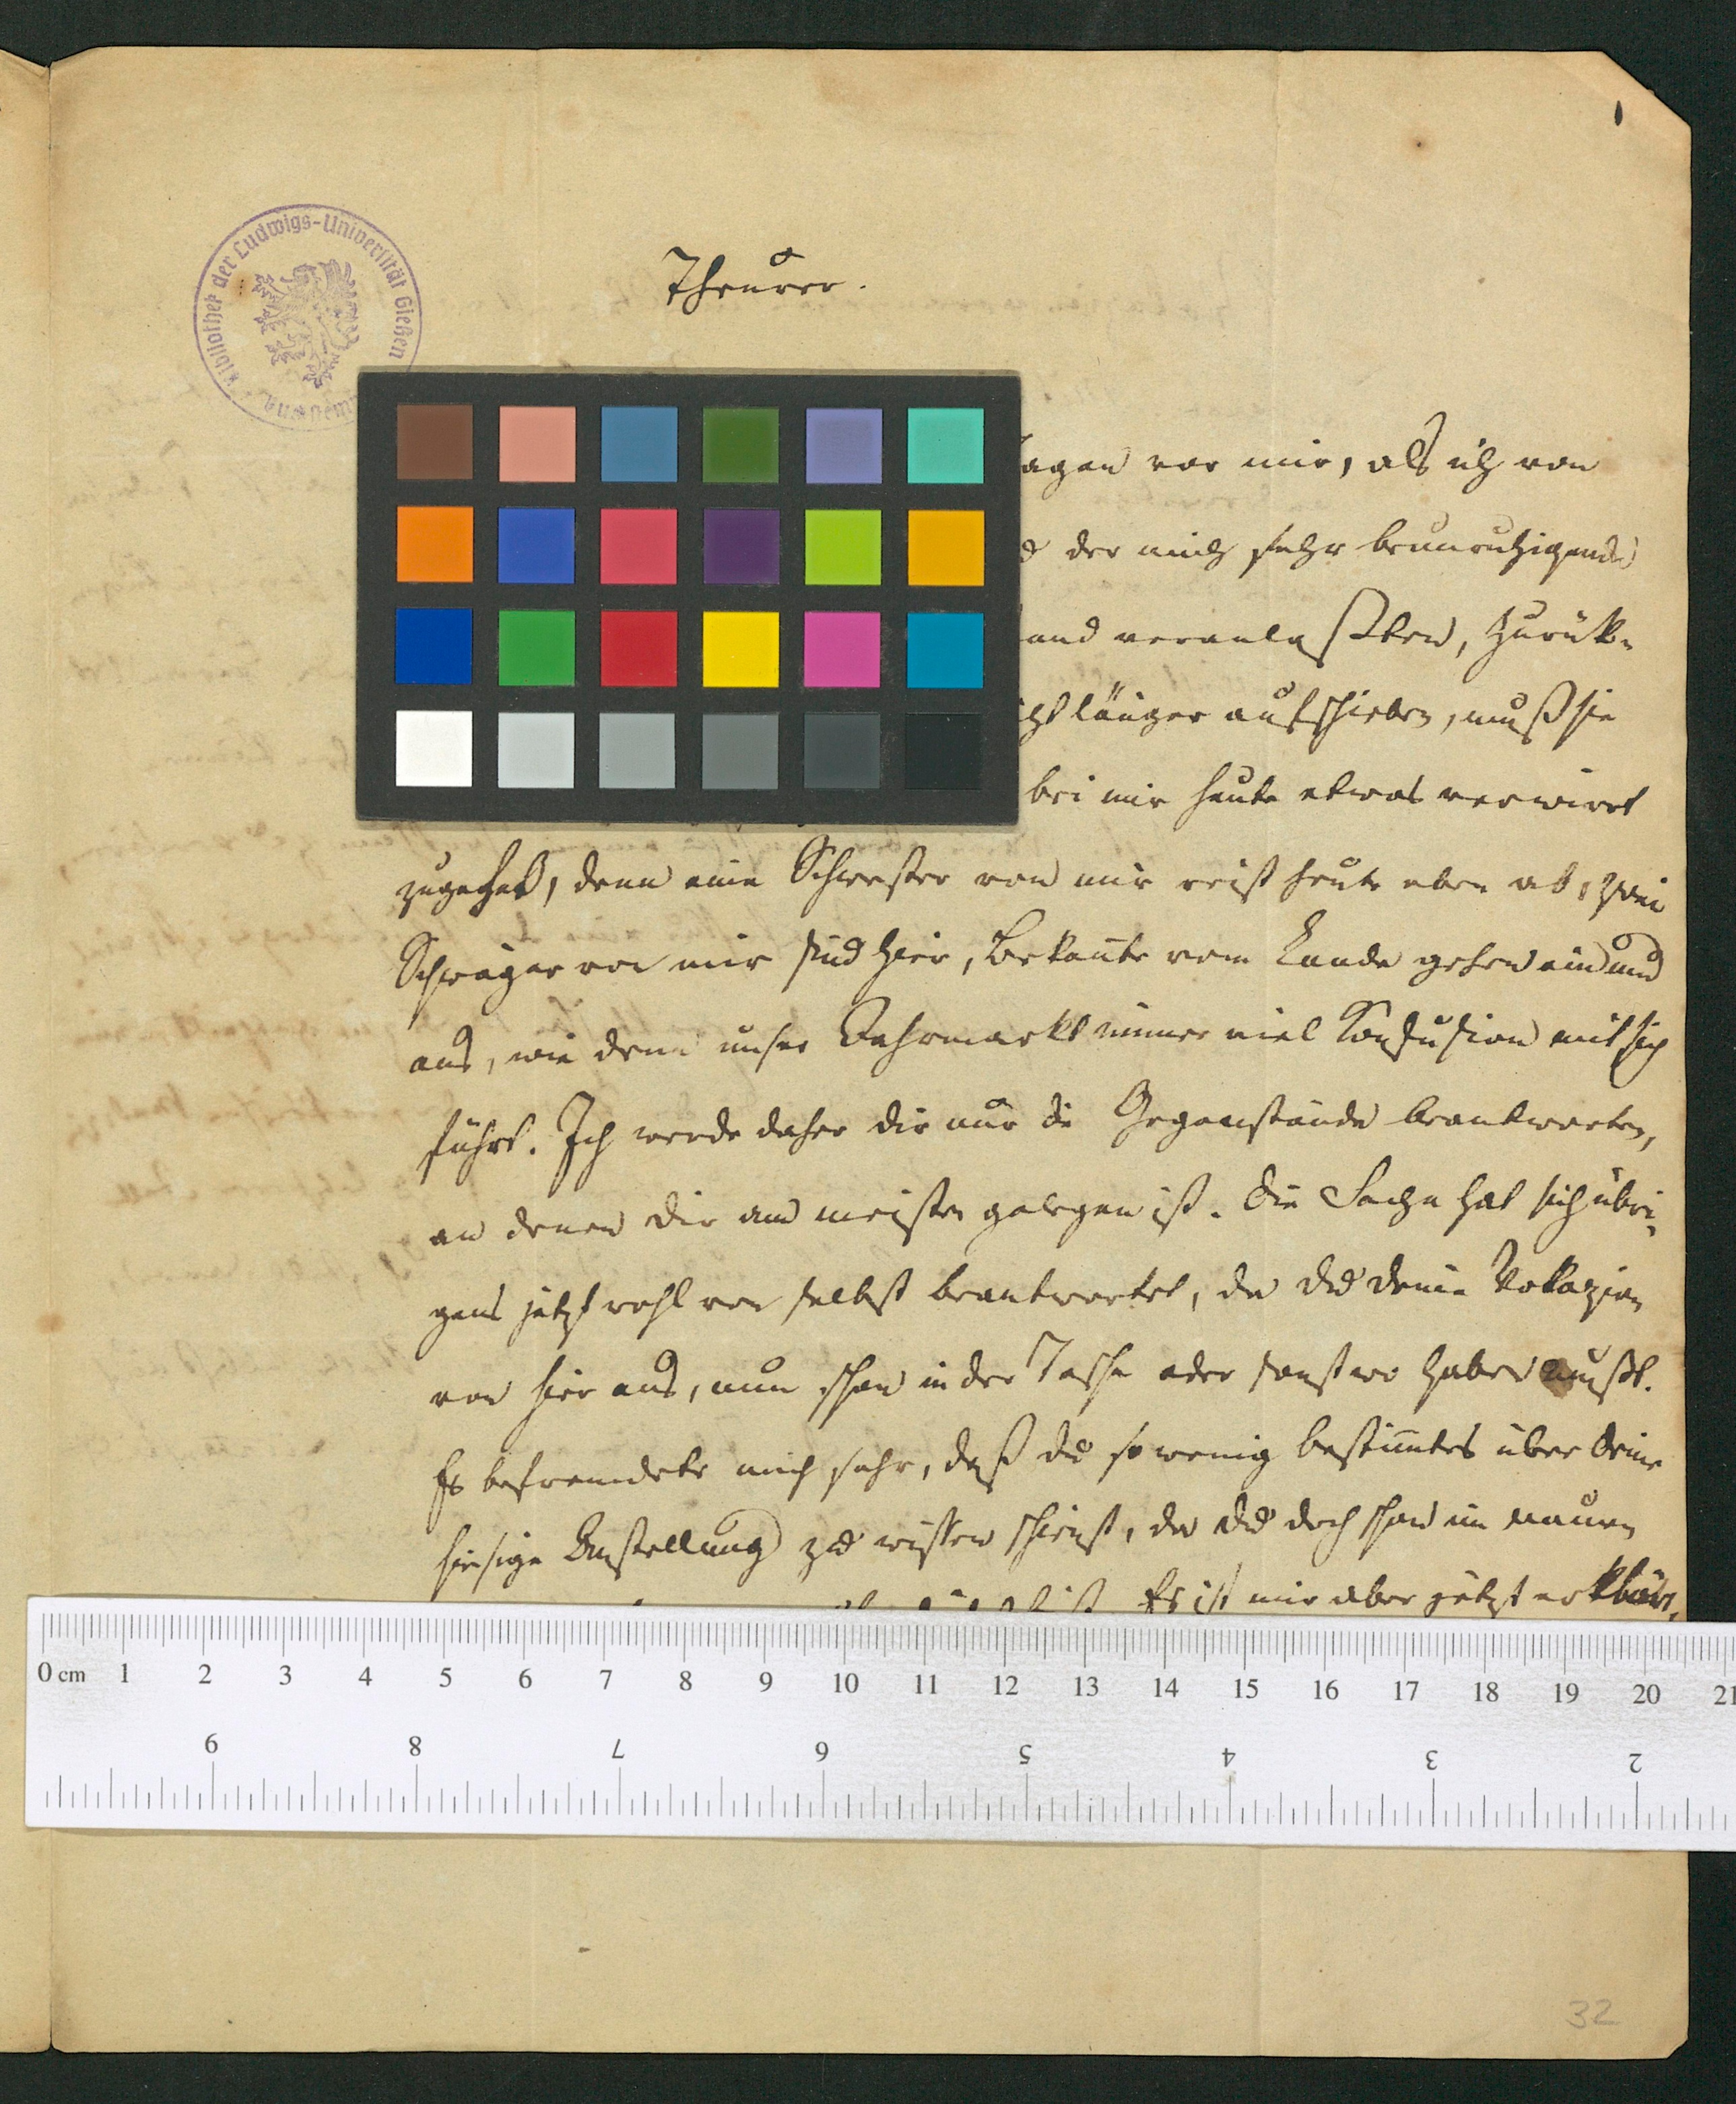 1
Bibliothek der Ludwigs-Universität Gießen
Theurer.
agen vor mir, als ich von
der mich sehr beunruhigende
and veranlaßten, zurük-
cht länger aufschieben, muß sie
bei mir heute etwas verwirrt
zugehet, denn eine Schwester von mir reist heute eben ab, zwei
Schwäger von mir sind hier, Bekante vom Lande gehen ein und
aus, wie denn unser Jahrmarkt immer viel Konfusion mit sich
führt. Ich werde daher dir nur die Gegenstände beantworten,
an denen dir am meisten gelegen ist. Die Sache hat sich übri-
gens jetzt wohl von selbst beantwortet, da du deine Vokazion
von hier aus, nun schon in der Tasche oder sonst wo haben mußt.
Es befremdete mich sehr, daß du so wenig bestimtes über deine
hiesige Anstellung zu wissen schienst, da du doch schon im
Es ist mir aber jetzt erklärt,
0 cm 1 2 3 4 5 6 7 8 9 10 11 12 13 14 15 16 17 18 19 20 21
9 8 7 6 5 4 3 2
32